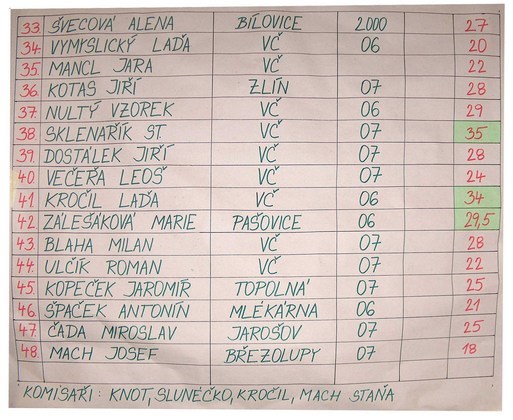 33. ŠVECOVÁ ALENA BÍLOVICE 2000 27
34. VYMYSLICKÝ LAĎA VČ 06 20
35. MANCL JARA VČ 22
36. KOTAS JIŘÍ ZLÍN 07 28
37. NULTÝ VZOREK VČ 06 29
38. SKLENAŘÍK ST VČ 07 35
39. DOSTÁLEK JIŘÍ VČ 07 28
40. VEČEŘA LEOŠ VČ 07 24
41. KROČIL LAĎA VČ 06 34
42. ZÁLEŠÁKOVÁ MARIE PAŠOVICE 06 29,5
43. BLAHA MILAN VČ 07 28
44. ULČÍK ROMAN VČ 07 22
45. KOPEČEK JAROMÍR TOPOLNÁ 07 25
46. ŠPAČEK ANTONÍN MLÉKÁRNA 06 21
47. ČADA MIROSLAV JAROŠOV 07 25
48. MACH JOSEF BŘEZOLUPY 07 18
KOMISAŘI: KNOT, SLUNEČKO, KROČIL, MACH STAŇA